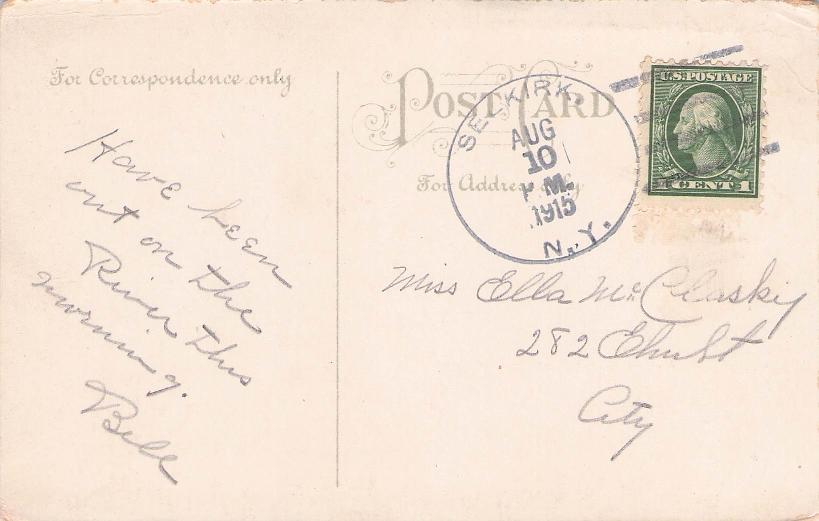 For Correspondence only
POST CARD
For Address only
U.S. POSTAGE
1 CENT 1
SELKIRK,
AUG
10
P M.
1915
N.Y.
Have been
out on the
River this
morning.
Bill
Miss Ella McClaskey
282
City